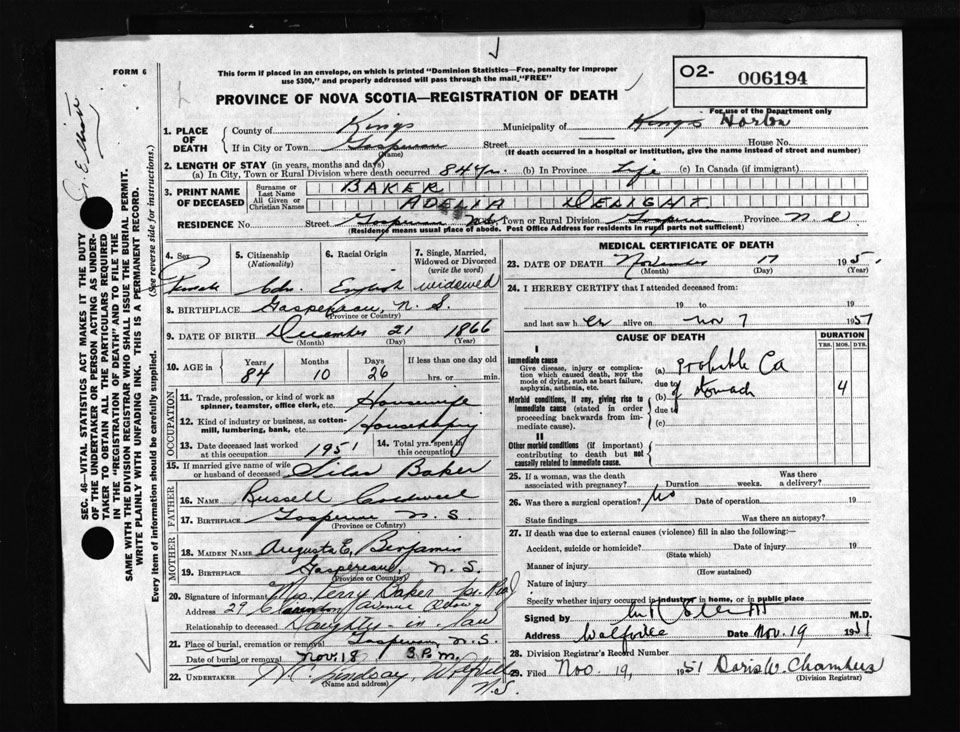 FORM 6
This form if placed in an envelope, on which is printed "Dominion Statistics—Free, penalty for improper
use $300," and properly addressed will pass through the mail, "FREE"
PROVINCE OF NOVA SCOTIA—REGISTRATION OF DEATH
O2- 006194
For use of the Department only
SEC. 46—VITAL STATISTICS ACT MAKES IT THE DUTY
OF THE UNDERTAKER OR PERSON ACTING AS UNDER-
TAKER TO OBTAIN ALL THE PARTICULARS REQUIRED
IN THE "REGISTRATION OF DEATH" AND TO FILE THE
SAME WITH THE DIVISION REGISTRAR WHO SHALL ISSUE THE BURIAL PERMIT.
WRITE PLAINLY WITH UNFADING INK. THIS IS A PERMANENT RECORD.
Every item of information should be carefully supplied. (See reverse side for instructions.)
1. PLACE OF DEATH
County of Kings Municipality of Kings Horton
If in City or Town Gaspereau Street — House No.
(Name) (If death occurred in a hospital or institution, give the name instead of street and number)
2. LENGTH OF STAY (in years, months and days)
(a) In City, Town or Rural Division where death occurred 84 Yrs. (b) In Province Life (c) In Canada (if immigrant)
3. PRINT NAME OF DECEASED
Surname or Last Name BAKER
All Given or Christian Names ADELIA DELIGHT
RESIDENCE No. Street Gaspereau N.S. Town or Rural Division Gaspereau Province N.S
(Residence means usual place of abode. Post Office Address for residents in rural parts not sufficient)
4. Sex Female
5. Citizenship (Nationality) Cdn.
6. Racial Origin English
7. Single, Married, Widowed or Divorced (write the word) widowed
8. BIRTHPLACE Gaspereau, N. S.
(Province or Country)
9. DATE OF BIRTH December 21 1866
(Month) (Day) (Year)
10. AGE in Years 84 Months 10 Days 26 If less than one day old
hrs. or min.
OCCUPATION
11. Trade, profession, or kind of work as
spinner, teamster, office clerk, etc. Housewife
12. Kind of industry or business, as cotton-
mill, lumbering, bank, etc. Housekeeping
13. Date deceased last worked at this occupation 1951 14. Total yrs. spent in this occupation
15. If married give name of wife
or husband of deceased Silas Baker
FATHER
16. NAME Russell Coldwell
17. BIRTHPLACE Gaspereau N. S.
(Province or Country)
MOTHER
18. MAIDEN NAME Augusta E. Benjamin
19. BIRTHPLACE Gaspereau, N. S.
(Province or Country)
20. Signature of informant Mrs. Perry Baker
Address 29 Clarendon Avenue
Relationship to deceased Daughter-in-law
21. Place of burial, cremation or removal Gaspereau N.S.
Date of burial or removal Nov. 18 3 P.m.
22. UNDERTAKER Lindsay, Wolfville
(Name and address) N.S.
MEDICAL CERTIFICATE OF DEATH
23. DATE OF DEATH November 17 1951
(Month) (Day) (Year)
24. I HEREBY CERTIFY that I attended deceased from:
19 to 19
and last saw her alive on Nov 7 1951
CAUSE OF DEATH DURATION
YRS. MOS. DYS.
I
Immediate cause
Give disease, injury or complica-
tion which caused death, not the
mode of dying, such as heart failure,
asphyxia, asthenia, etc.
(a) Probable Ca
due to
(b) of stomach 4
due to
(c)
Morbid conditions, if any, giving rise to
immediate cause (stated in order
proceeding backwards from im-
mediate cause).
II
Other morbid conditions (if important)
contributing to death but not
causally related to immediate cause.
25. If a woman, was the death
associated with pregnancy? Duration weeks. Was there a delivery?
26. Was there a surgical operation? No Date of operation 19
State findings Was there an autopsy?
27. If death was due to external causes (violence) fill in also the following:—
Accident, suicide or homicide? Date of injury 19
(State which)
Manner of injury
(How sustained)
Nature of injury
Specify whether injury occurred in industry, in home, or in public place
Signed by M.D.
Address Wolfville Date Nov. 19 1951
28. Division Registrar's Record Number
29. Filed Nov. 19, 1951 Doris W. Chambers
(Division Registrar)